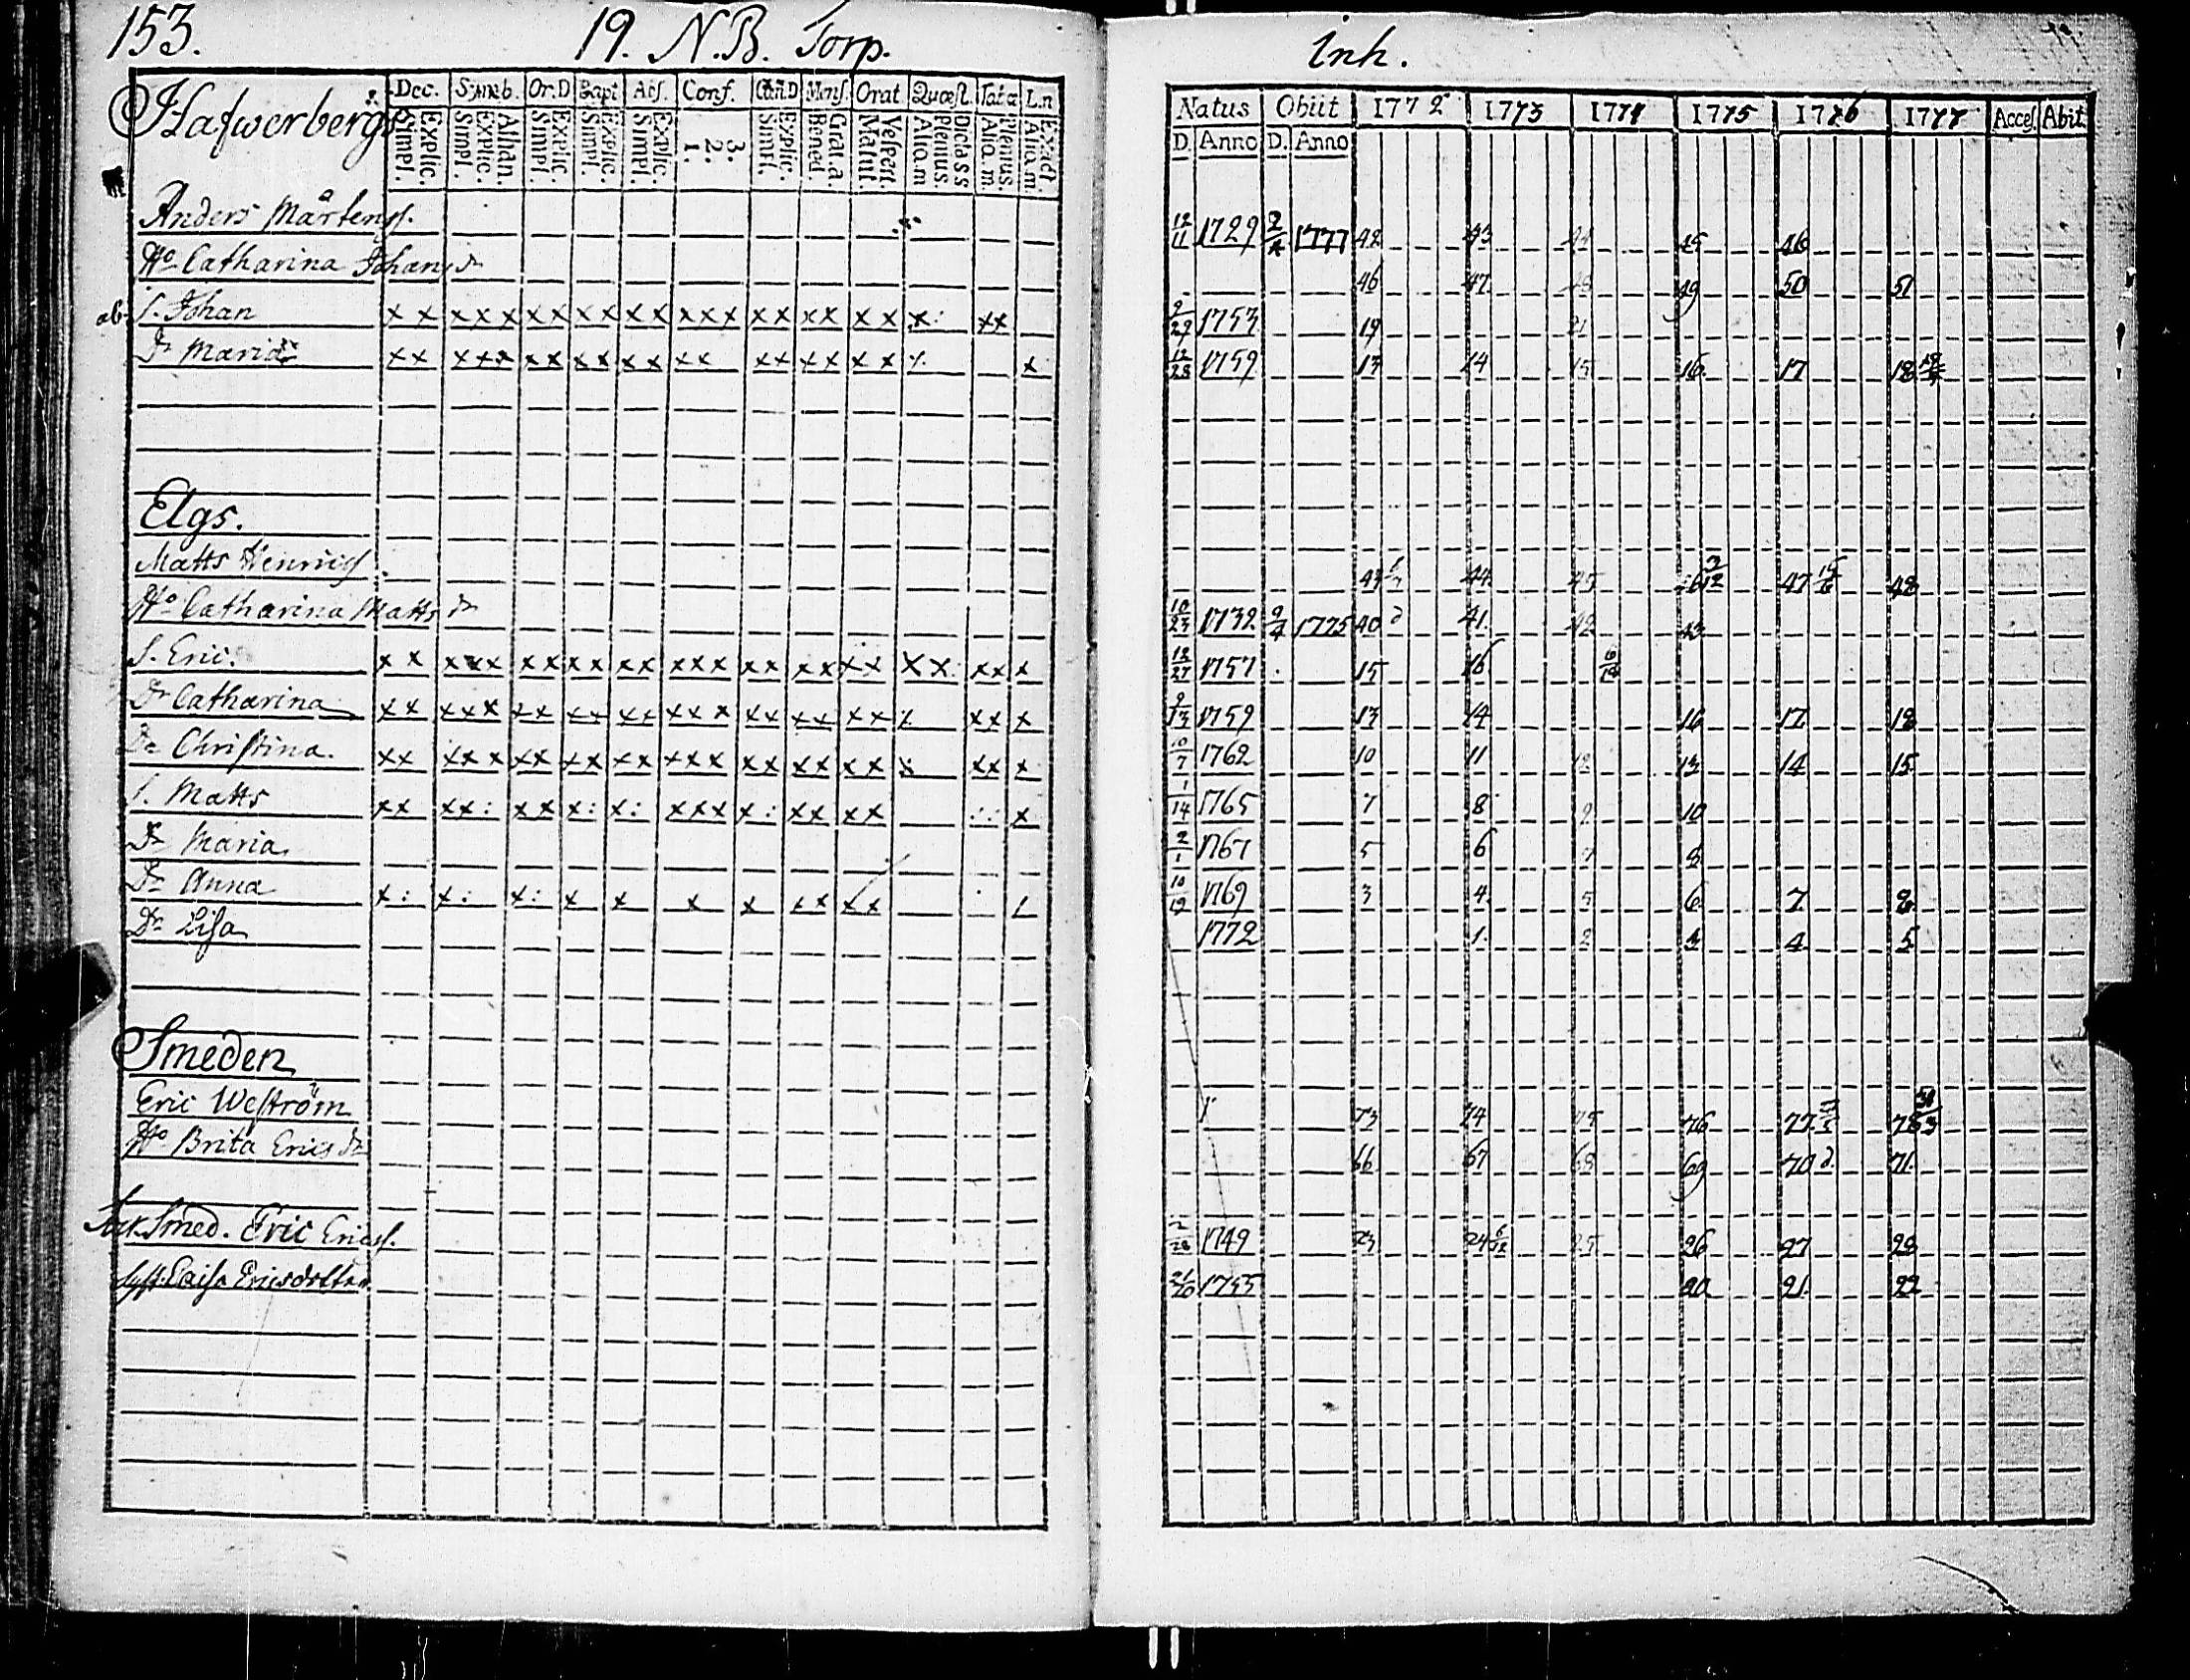 153. 19. N.B. Torp. Inh.
Hafwerbergs Dec. Symb. Or.D Bapt Abs. Conf. Cœn D Mens. Orat Quæst. Tab.œ L.n
Simpl. Explic. Simpl. Explic. Athan. Simpl. Explic. Simpl. Explic. Simpl. Explic. 1. 2. 3. Simpl. Explic. Bened. Grat. a. Matut. Vespert. Aliq. m plenius. Dicta S S Aliq. m. Plenius. Aliq. m. Exact.
Natus Obiit 1772 1773 1774 1775 1776 1777 Acces. Abit.
D. Anno D. Anno
Anders Mårtens. 12/11 1729 2/4 1777 42 43 44 45 46
Ho Catharina Johans dr 46 47 48 49 50 51
ab. S. Johan x x x x x x x x x x x x x x x x x x x x x x: x x 9/29 1753 19 21
Dr Maria x x x x x x x x x x x x x x x x x x x x 12/28 1759 13 14 15 16 17 18
Elgs.
Matts Henrics. 43 44 45 46 47 48
Ho Catharina Matts dr 10/23 1732 9/4 1775 40 41 42 43
S. Eric. x x x x x x x x x x x x x x x x x x x x x x x x x x 12/27 1757 15 16
Dr Catharina x x x x x x x x x x x x x x x x x x x x x x x x 9/13 1759 13 14 16 17 18
Dr Christina. x x x x x x x x x x x x x x x x x x x x x x x x 10/7 1762 10 11 12 13 14 15
S. Matts x x x x: x x x: x: x x x x: x x x x x 1/14 1765 7 8 9 10
Dr Maria 2/1 1767 5 6 7 8
Dr Anna x: x: x: x x x x x x x x 10/19 1769 3 4 5 6 7 8
Dr Lisa 1772 1 2 3 4 5
Smeden
Eric Weström 73 74 75 76 77 78
Ho Brita Erics dr 66 67 68 69 70 71
Smed. Eric Erics. 2/28 1749 23 24 25 26 27 28
Caisa Ericsdotter 1755 20 21 22